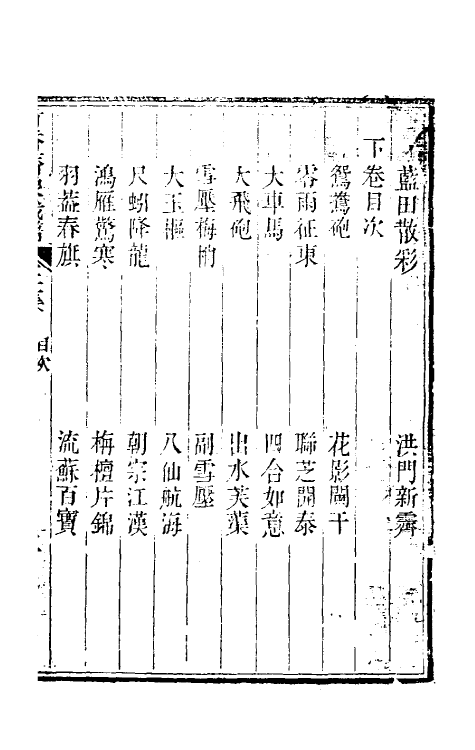 藍田散彩　洪門新霽
下卷目次
鴛鴦砲　花影闌干
零雨征東　聯芝開泰
大車馬　四合如意
大飛砲　出水芙蕖
雪壓梅梢　副雪壓
大玉樞　八仙航海
尺蚓降龍　朝宗江漢
鴻雁驚寒　梅檀片錦
羽蓋春旗　流蘇百寶
目次